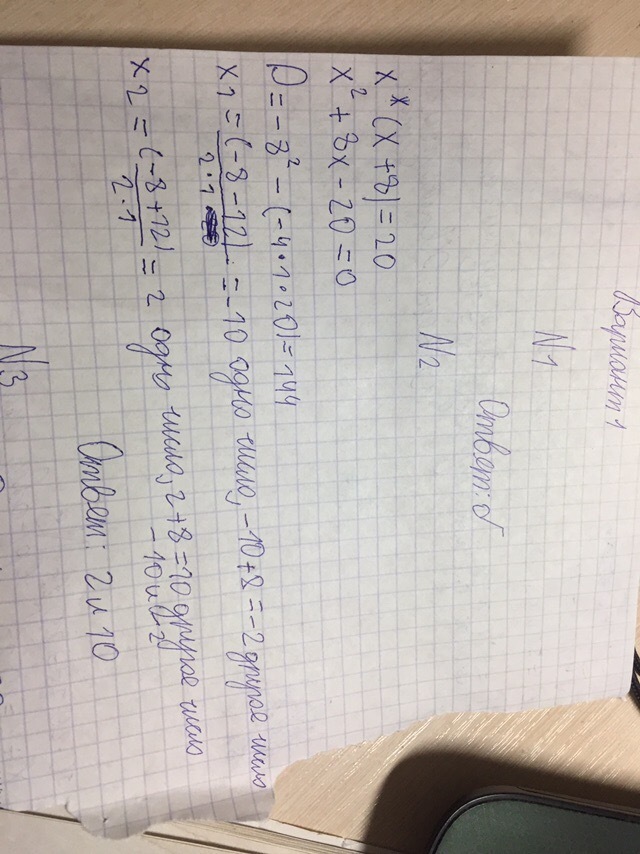 Вариант 1
N1
Ответ: б
N2
x*(x+8)=20
x²+8x-20=0
D=-8²-(-4·1·20)=144
x1=(-8-12)/2·1=-10 одно число, -10+8=-2 другое число
x2=(-8+12)/2·1=2 одно число, 2+8=10 другое число
-10 и -2
Ответ: 2 и 10
N3